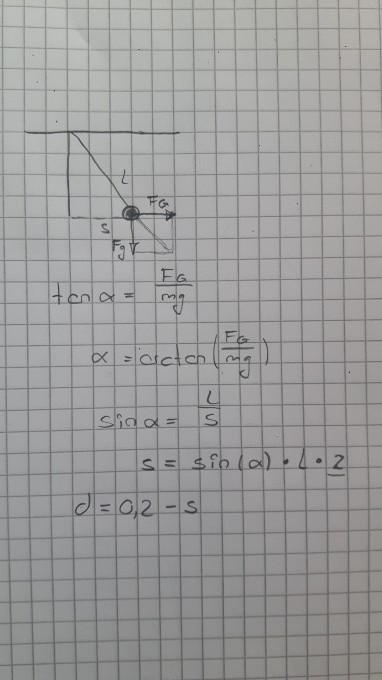 L
FG
s
Fg
tan α = FG/mg
α = arctan(FG/mg)
sin α = L/s
s = sin(α) • L • 2
d = 0,2 - s